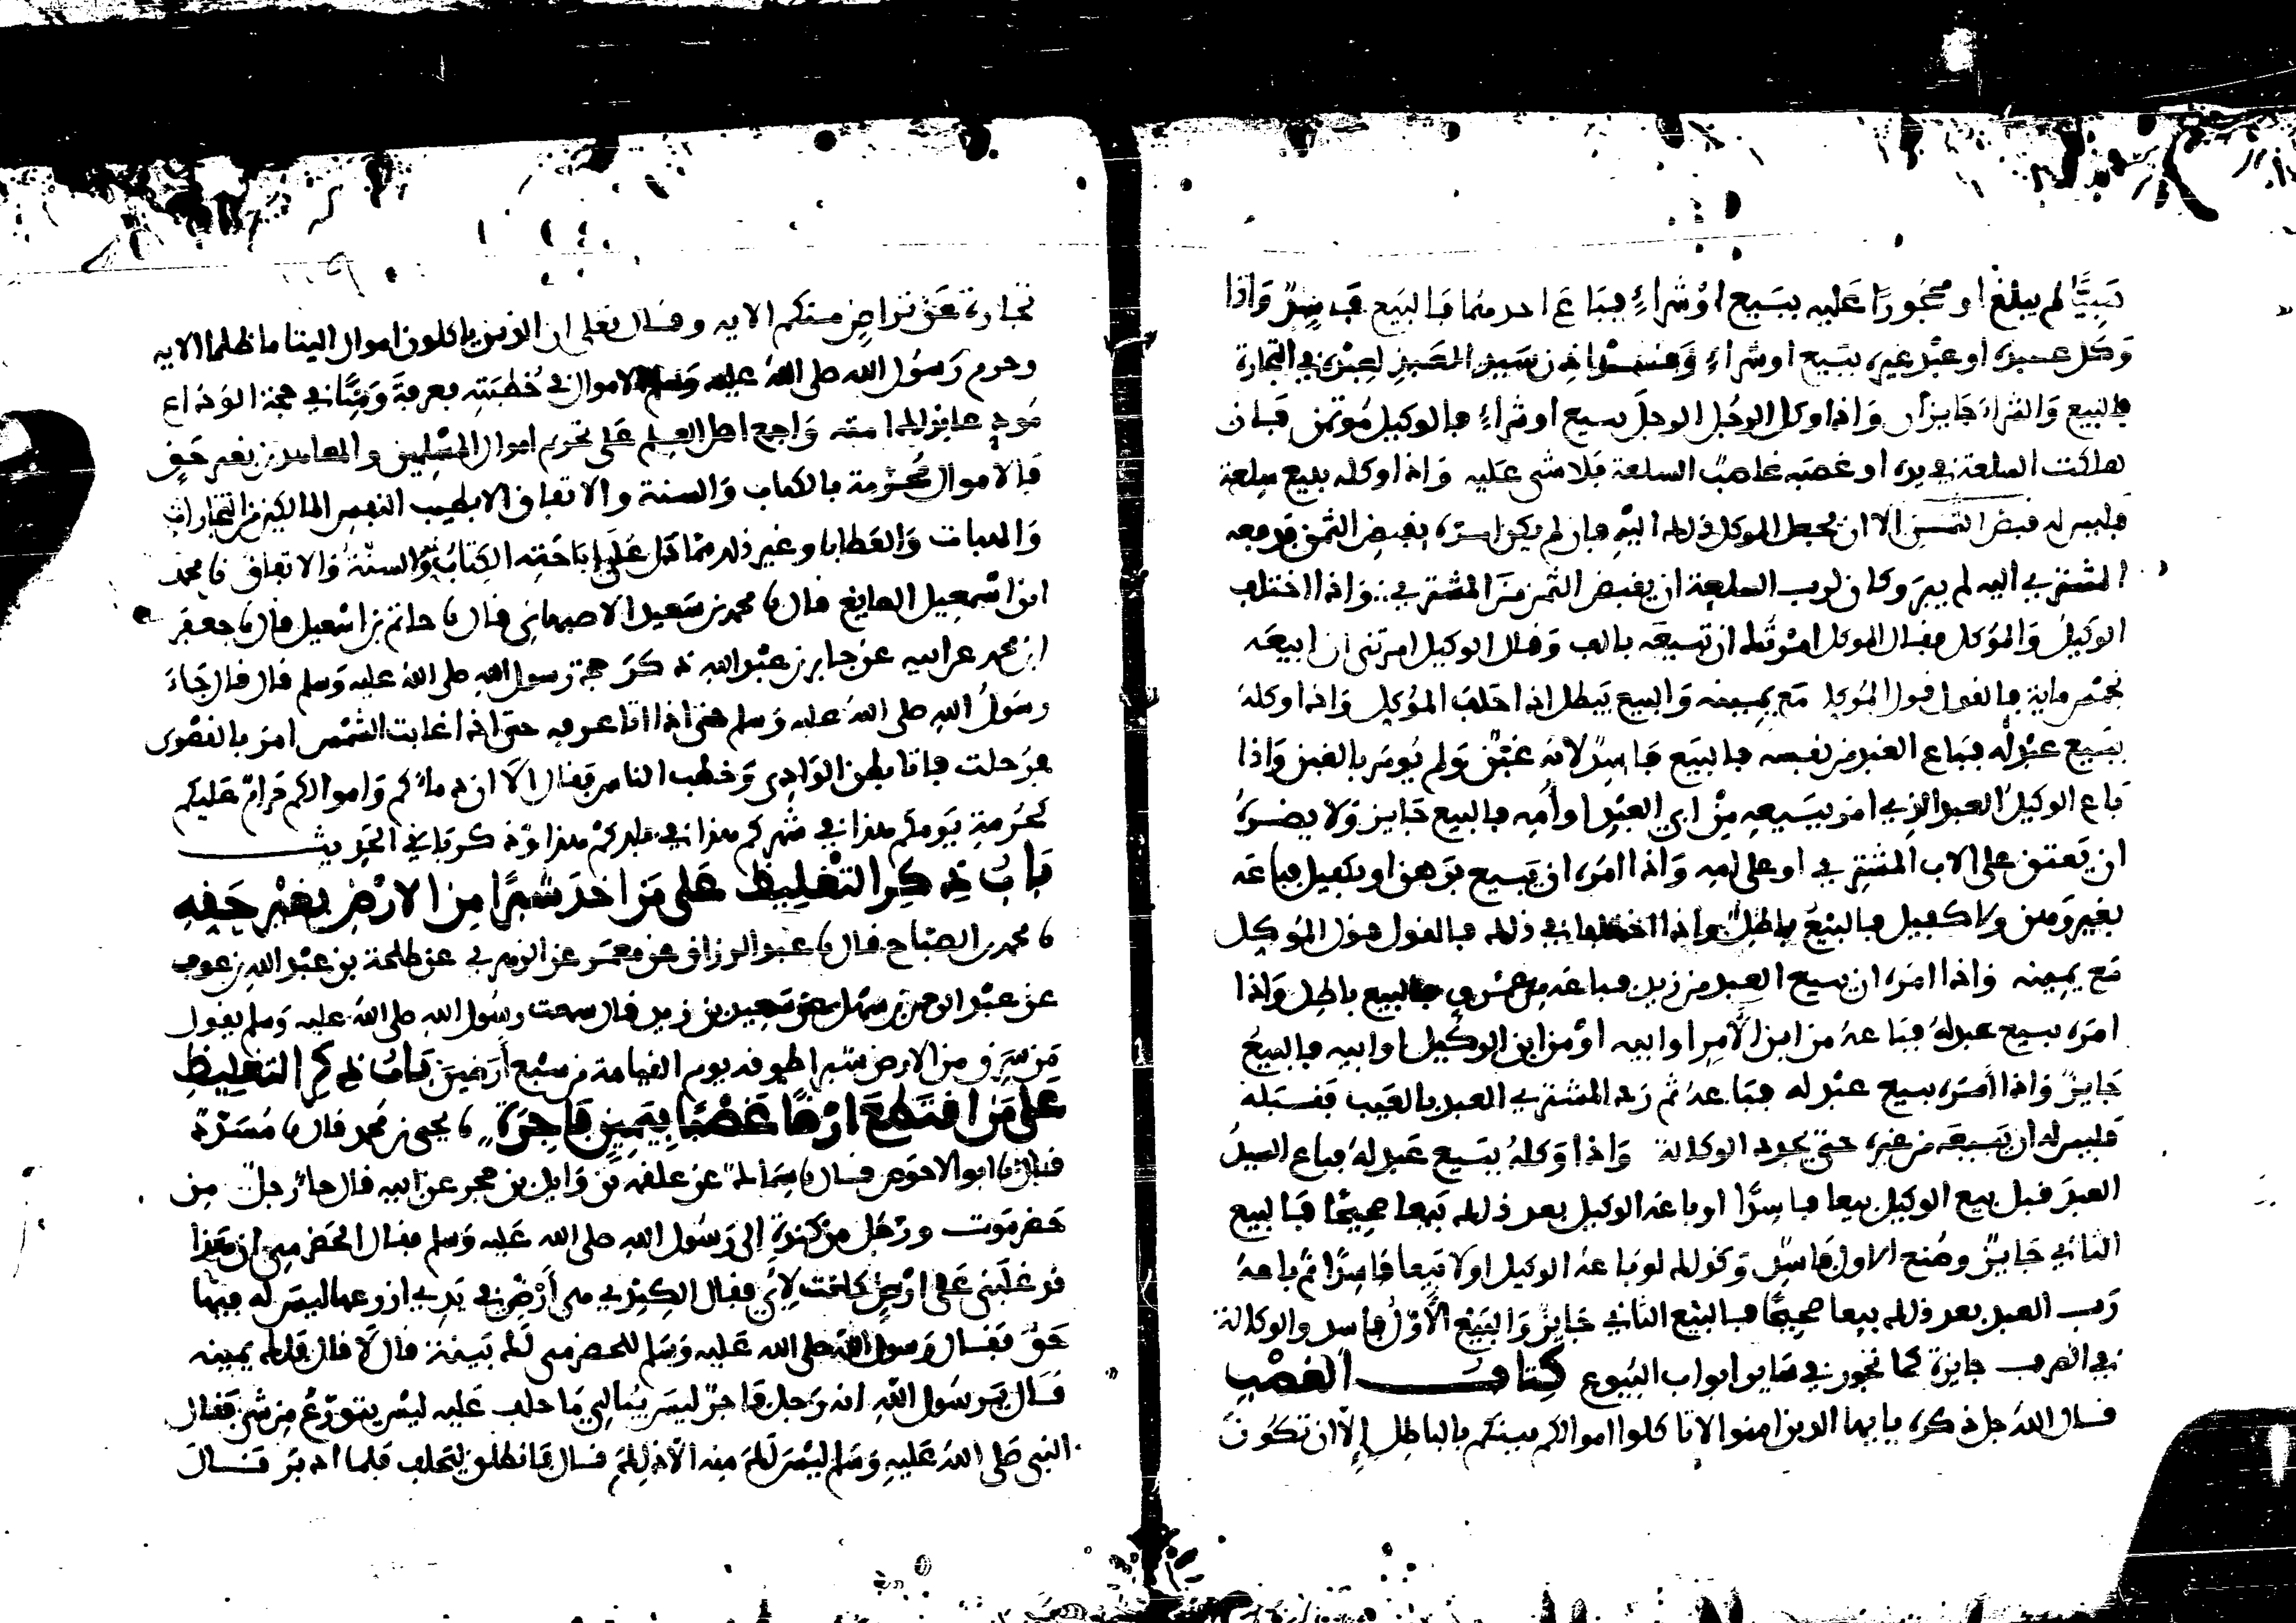 صبيا لم يبلغ او محجورا عليه ببيع او شراء فباع احد منهما فالبيع فاسد واذا
وكل عبده او عبد غيره ببيع او شراء وقد اذن سيد العبد لعبده في التجارة
فالبيع والشراء جايزان واذا وكل الرجل الرجل ببيع او شراء فالوكيل مؤتمن فان
هلكت السلعة في يده او غصبه غاصب السلعة فلا شي عليه واذا وكله ببيع سلعة
فليس له قبض الثمن الا ان يجعل الموكل ذلك اليه فان لم يكن امره بقبض الثمن فدفعه
المشتري اليه لم يبر وكان لرب السلعة ان يقبض الثمن من المشتري واذا اختلف
الوكيل والموكل فقال الموكل امرتك ان تبيعه بالف وقال الوكيل امرتني ان ابيعه
بخمس ماية فالقول قول الموكل مع يمينه والبيع يبطل اذا حلف الموكل واذا وكله
ببيع عبد له فباع العبد من نفسه فالبيع فاسد لانه عتق ولم يومر بالعتق واذا
باع الوكيل العبد الذي امر ببيعه من ابن العبد او امه فالبيع جايز ولا يضره
ان يعتق على الاب المشتري او على امه واذا امره ان يبيع برهن او بكفيل فباعه
بغير رهن ولا كفيل فالبيع باطل واذا اختلفا في ذلك فالقول قول الموكل
مع يمينه واذا امره ان يبيع العبد من زيد فباعه من عمرو فالبيع باطل واذا
امره ببيع عبد له فباعه من ابن الآمر او ابيه او من ابن الوكيل او ابيه فالبيع
جايز واذا امره ببيع عبد له فباعه ثم رد المشتري العبد بالعيب فقبله
فليس له ان يبيعه من غيره حتى يجدد الوكالة واذا وكله ببيع عبد له فباع السيد
العبد قبل بيع الوكيل بيعا فاسدا او باعه الوكيل بعد ذلك بيعا صحيحا فالبيع
الثاني جايز وصنع الاول فاسد وكذلك لو باعه الوكيل اولا بيعا فاسدا ثم باعه
رب العبد بعد ذلك بيعا صحيحا فالبيع الثاني جايز والبيع الاول فاسد والوكالة
في الصرف جايزة كما تجوز في ساير ابواب البيوع كتاب الغصب
قال الله جل ذكره يا يها الذين امنوا لا تاكلوا اموالكم بينكم بالباطل الا ان تكون
تجارة عن تراض منكم الايه وقال تعلى ان الذين ياكلون اموال اليتاما ظلما الايه
وحرم رسول الله صلى الله عليه وسلم الاموال في خطبته بعرفة ومنا في حجة الوداع
وأجمع اهل العلم على تحريم اموال المسلمين والمعاهدين بغير حق
فالاموال محرمة بالكتاب والسنة والاتفاق الا بطيب انفس المالكين من التجارات
والهبات والعطايا وغير ذلك مما دل على إباحته الكتاب والسنة والاتفاق نا محمد
ابن اسمعيل الصايغ قال نا محمد بن سعيد الاصبهاني قال نا حاتم بن اسمعيل قال نا جعفر
ابن محمد عن ابيه عن جابر بن عبد الله ذكر حجة رسول الله صلى الله عليه وسلم قال قال جاء
رسول الله صلى الله عليه وسلم حتى اذا اتا عرفه حتى اذا غابت الشمس امر بالقصوى
فرحلت فاتا بطن الوادي وخطب الناس فقال الا ان دماكم واموالكم حرام عليكم
كحرمة يومكم هذا في شهركم هذا في بلدكم هذا وذكر باقي الحديث
باب ذكر التغليظ على من اخذ شبرا من الارض بغير حقه
نا محمد بن الصباح قال نا عبد الرزاق عن معمر عن الزهري عن طلحة بن عبد الله بن عوف
عن عبد الرحمن بن سهل عن سعيد بن زيد قال سمعت رسول الله صلى الله عليه وسلم يقول
من سرق من الارض شبرا طوقه يوم القيامة من سبع أرضين باب ذكر التغليظ
على من اقتطع ارضا غصبا بيمين فاجرة نا يحيى بن محمد قال نا مسدد
قال نا ابو الاحوص قال نا سماك عن علقمه بن وايل بن حجر عن ابيه قال جا رجل من
حضرموت ورجل من كندة إلى رسول الله صلى الله عليه وسلم فقال الحضرمي ان هذا
قد غلبني على ارض كانت لأبي فقال الكندي هي أرضي في يدي ازرعها ليس له فيها
حق فقال رسول الله صلى الله عليه وسلم للحضرمي لك بينة قال لا قال فلك يمينه
قال يرسول الله انه رجل فاجر ليس يبالي ما حلف عليه ليس يتورع من شي فقال
النبي صلى الله عليه وسلم ليس لك منه الا ذلك قال فانطلق ليحلف فلما ادبر قال